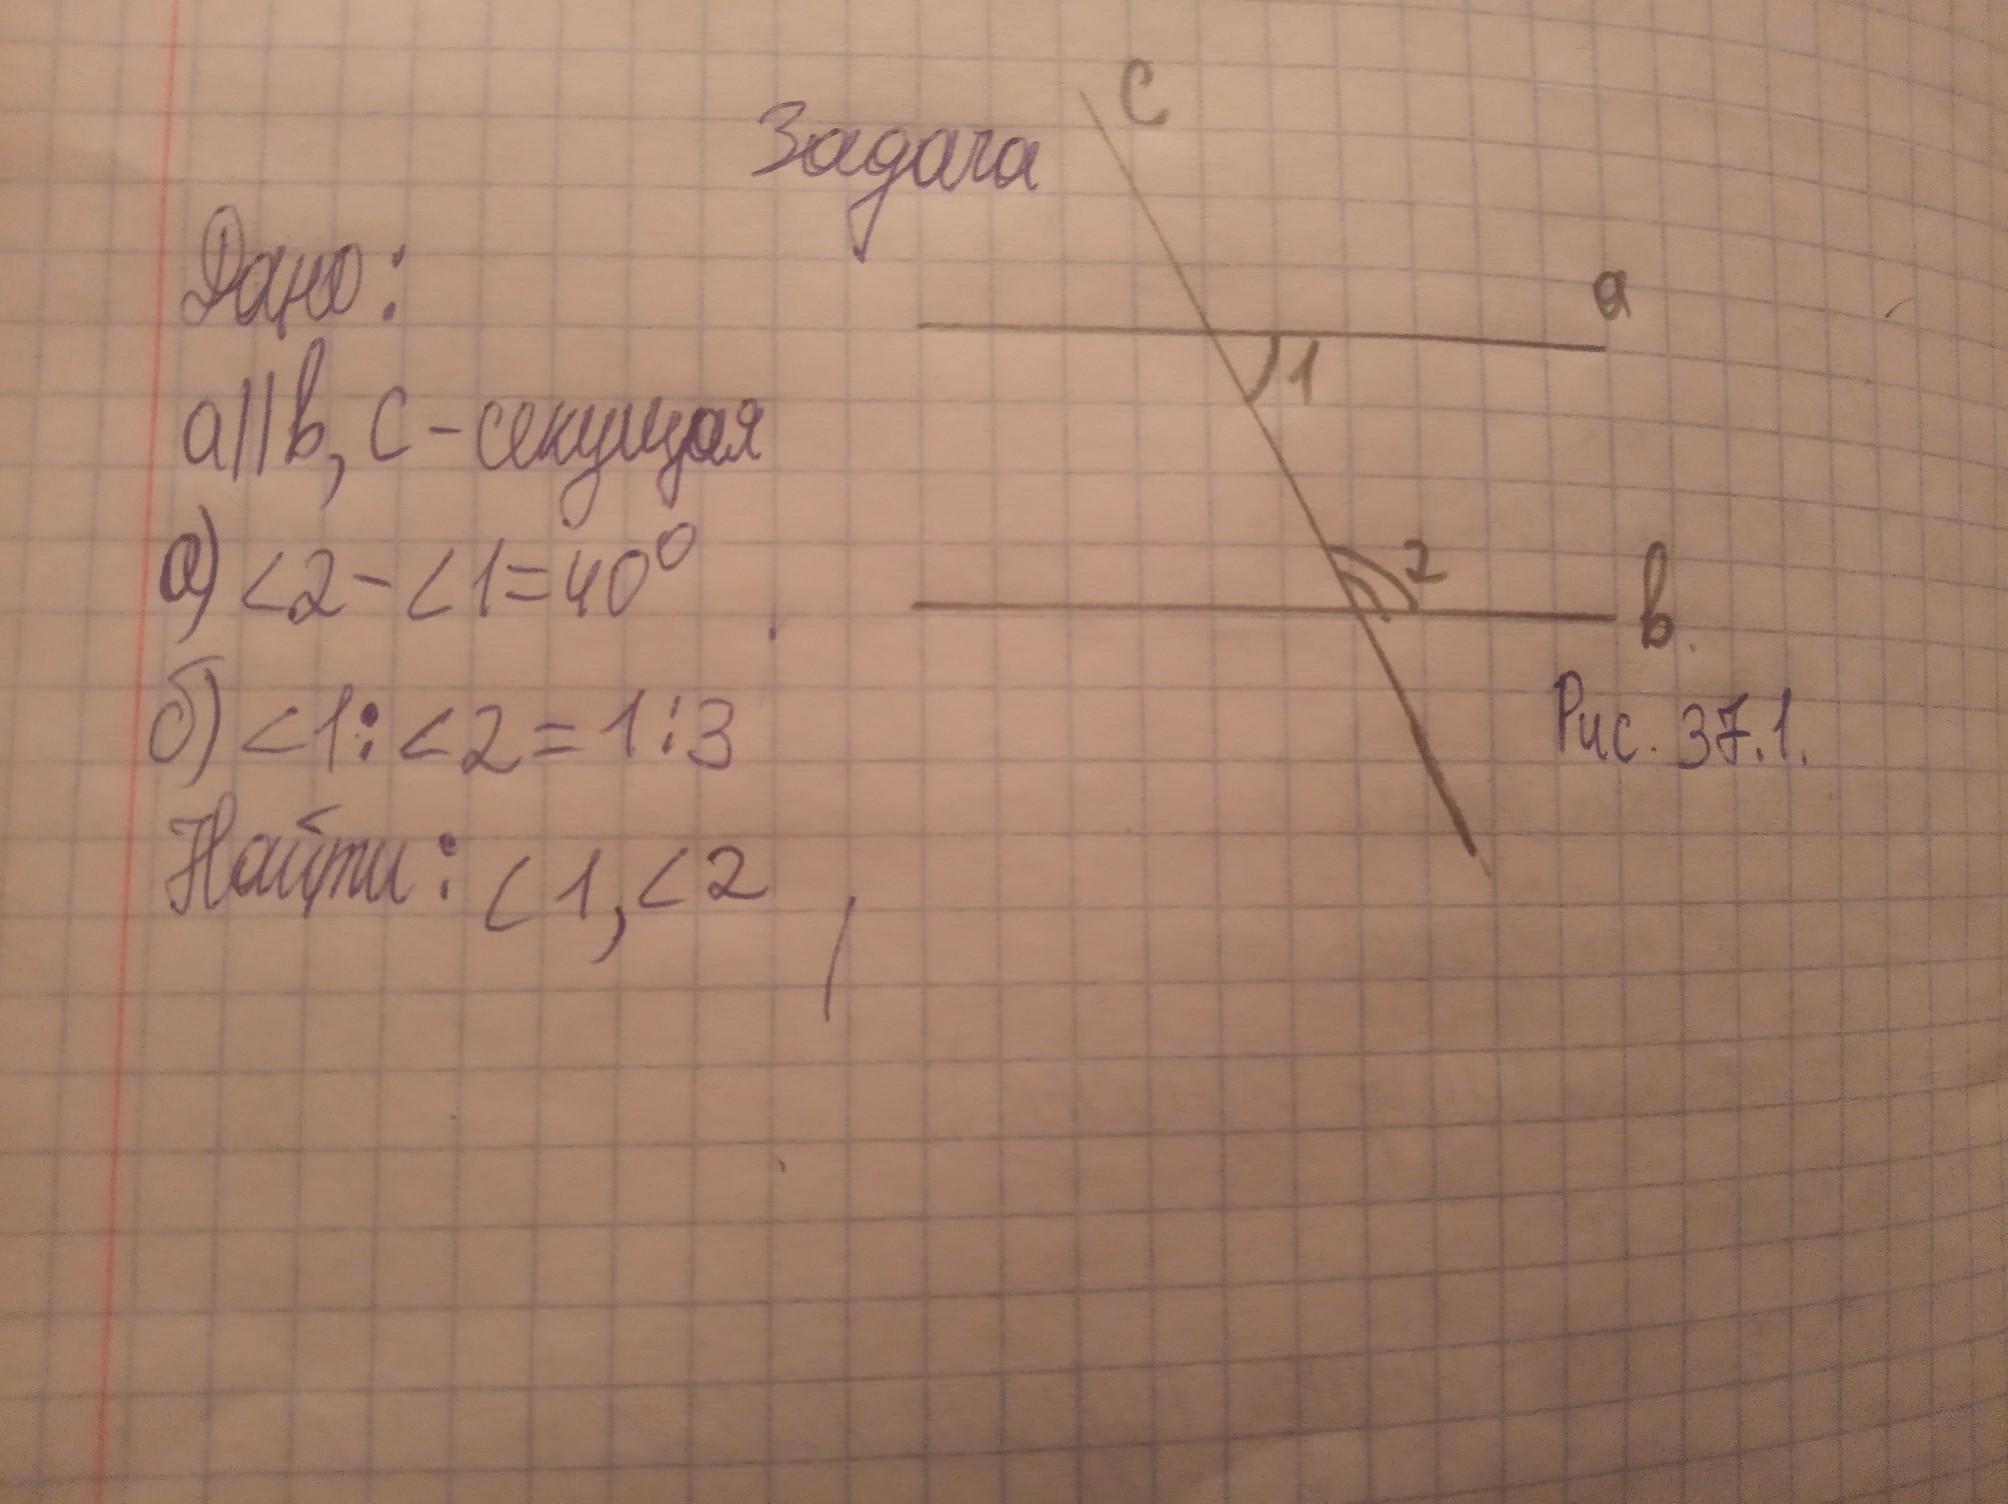 Задача
Дано:
a||b, c-секущая
а) <2-<1=40°
б) <1:<2=1:3
Найти: <1, <2
c
a
1
2
b
Рис. 37.1.